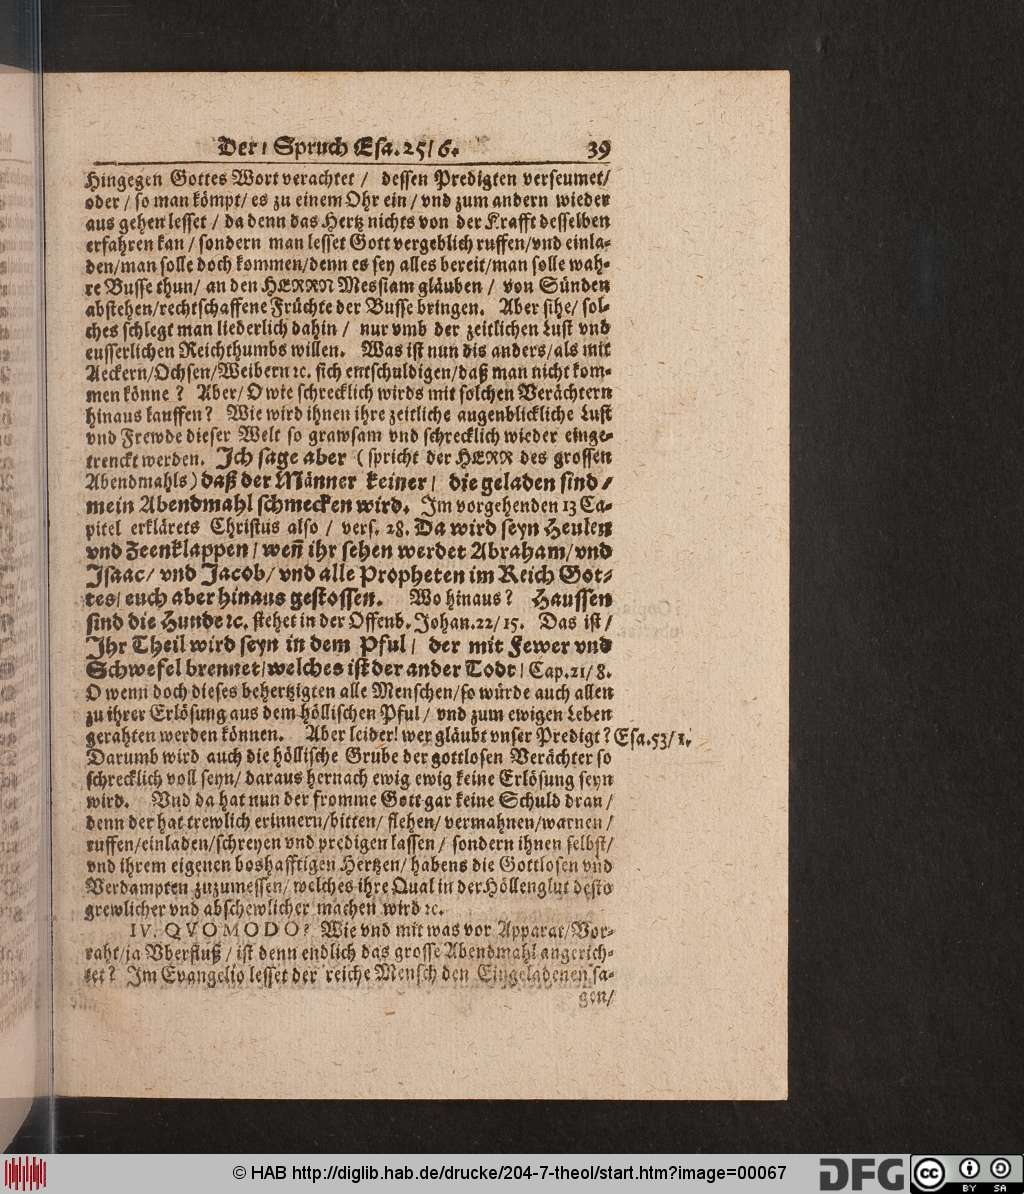 Der / Spruch Esa. 25/ 6. 39
Hingegen Gottes Wort verachtet / dessen Predigten verseumet/
oder / so man kömpt/ es zu einem Ohr ein / vnd zum andern wieder
aus gehen lesset / da denn das Hertz nichts von der Krafft desselben
erfahren kan / sondern man lesset Gott vergeblich ruffen/vnd einla-
den/man solle doch kommen/denn es sey alles bereit/man solle wah-
re Busse thun/ an den HERRN Messiam gläuben / von Sünden
abstehen/rechtschaffene Früchte der Busse bringen. Aber sihe/ sol-
ches schlegt man liederlich dahin / nur vmb der zeitlichen Lust vnd
eusserlichen Reichthumbs willen. Was ist nun dis anders/als mit
Aeckern/Ochsen/Weibern ꝛc. sich entschuldigen/daß man nicht kom-
men könne ? Aber/ O wie schrecklich wirds mit solchen Verächtern
hinaus lauffen? Wie wird ihnen ihre zeitliche augenblickliche Lust
vnd Frewde dieser Welt so grawsam vnd schrecklich wieder einge-
trenckt werden. Ich sage aber ( spricht der HERR des grossen
Abendmahls) daß der Männer keiner/ die geladen sind /
mein Abendmahl schmecken wird. Im vorgehenden 13 Ca-
pitel erklärets Christus also / vers. 28. Da wird seyn Heulen
vnd Zeenklappen / weñ ihr sehen werdet Abraham/ vnd
Isaac/ vnd Jacob/ vnd alle Propheten im Reich Got-
tes/ euch aber hinaus gestossen. Wo hinaus? Haussen
sind die Hunde ꝛc. stehet in der Offenb. Johan. 22/ 15. Das ist /
Ihr Theil wird seyn in dem Pful / der mit Fewer vnd
Schwefel brennet/welches ist der ander Todt / Cap. 21/ 8.
O wenn doch dieses behertzigten alle Menschen/so würde auch allen
zu ihrer Erlösung aus dem höllischen Pful / vnd zum ewigen Leben
gerahten werden können. Aber leider! wer gläubt vnser Predigt? Esa. 53/ 1.
Darumb wird auch die höllische Grube der gottlosen Verächter so
schrecklich voll seyn/ daraus hernach ewig ewig keine Erlösung seyn
wird. Vnd da hat nun der fromme Gott gar keine Schuld dran /
denn der hat trewlich erinnern/bitten/ flehen/ vermahnen/warnen /
ruffen/einladen/schreyen vnd predigen lassen / sondern ihnen selbst/
vnd ihrem eigenen boshafftigen Hertzen/ habens die Gottlosen vnd
Verdampten zuzumessen/ welches ihre Qual in der Höllenglut desto
grewlicher vnd abschewlicher machen wird ꝛc.
IV. QVOMODO? Wie vnd mit was vor Apparat/Vor-
raht/ja Vberfluß / ist denn endlich das grosse Abendmahl angerich-
tet? Im Evangelio lesset der reiche Mensch den Eingeladenen sa-
gen/
© HAB http://diglib.hab.de/drucke/204-7-theol/start.htm?image=00067
DFG
cc BY SA